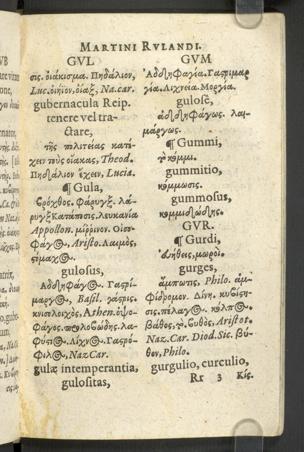 MARTINI RVLANDI.
GVL
σις. οἰάκισμα. Πηδάλιον,
Luc. οἰήιον, οἴαξ, Na. car.
gubernacula Reip.
tenere vel tra-
ctare,
τῆς πολιτείας κατέ-
χειν τοὺς οἴακας, Theod.
Πηδάλιον ἔχειν, Lucia.
¶ Gula,
βρόχθος. Φάρυγξ. λά-
ρυγξ κατάποσις λευκανία
Appollon.
φάγος, Aristo. Λαιμὸς,
gulosus,
Ἀδδηφάγος. Γαστρί-
μαργος, Basil. γάστρις.
κνισολοιχὸς, Athen. ὀψο-
φάγος.
λίχνος. Γαστρό-
φιλος, Naz. Car.
gulæ intemperantia,
gulositas,
GVM
Ἀδδηφαγία. Γαστριμαρ
γία. Λιχνεία. Μαργία.
gulose,
ἀδδηφάγως. λαι-
μάργως.
¶ Gummi,
τὸ κόμμι.
gummitio,
κόμμωσις.
gummosus,
κομμιώδης.
GVR.
¶ Gurdi,
εὐήθεις, μωροί.
gurges,
ἄμπωτις, Philo. ἀμ-
φίδρομον. Δίνη.
βάθος, ὁ βυθὸς, Aristot.
Naz. Car. Diod. Sic. βύ-
θον, Philo.
gurgulio, curculio,
Rr 3 Κίς.